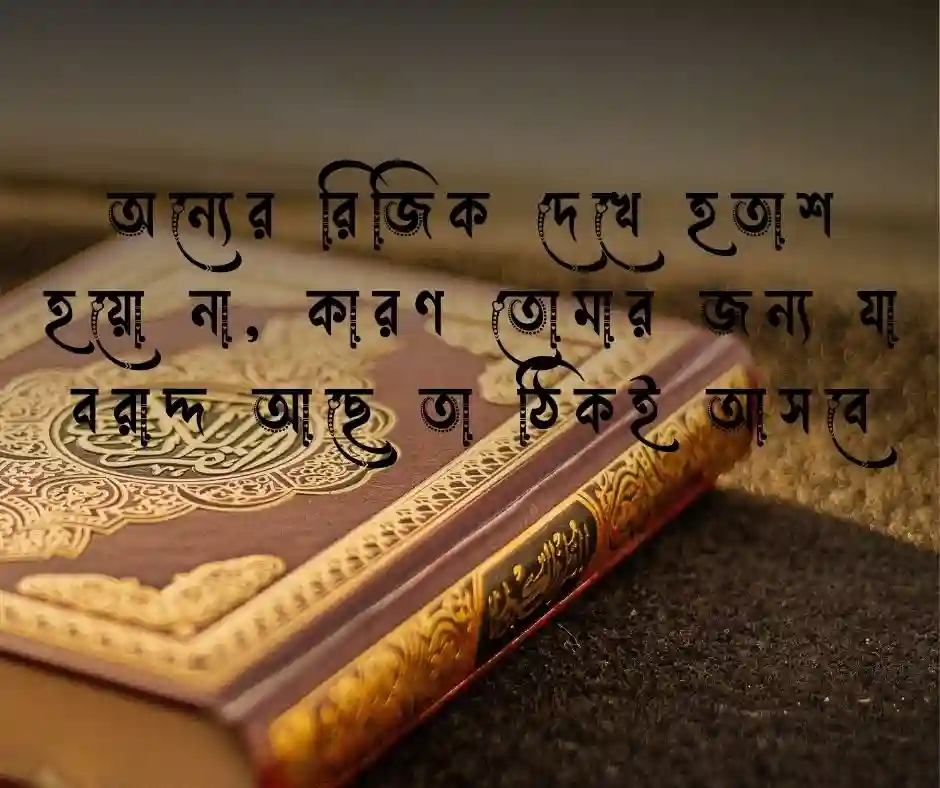 অন্যের রিজিক দেখে হতাশ
হয়ো না, কারণ তোমার জন্য যা
বরাদ্দ আছে তা ঠিকই আসবে